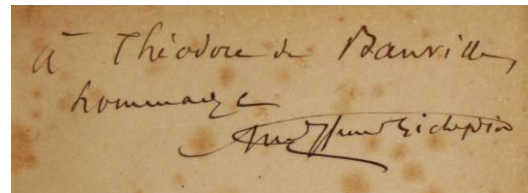 à Théodore de Banville,
hommage
Richepin